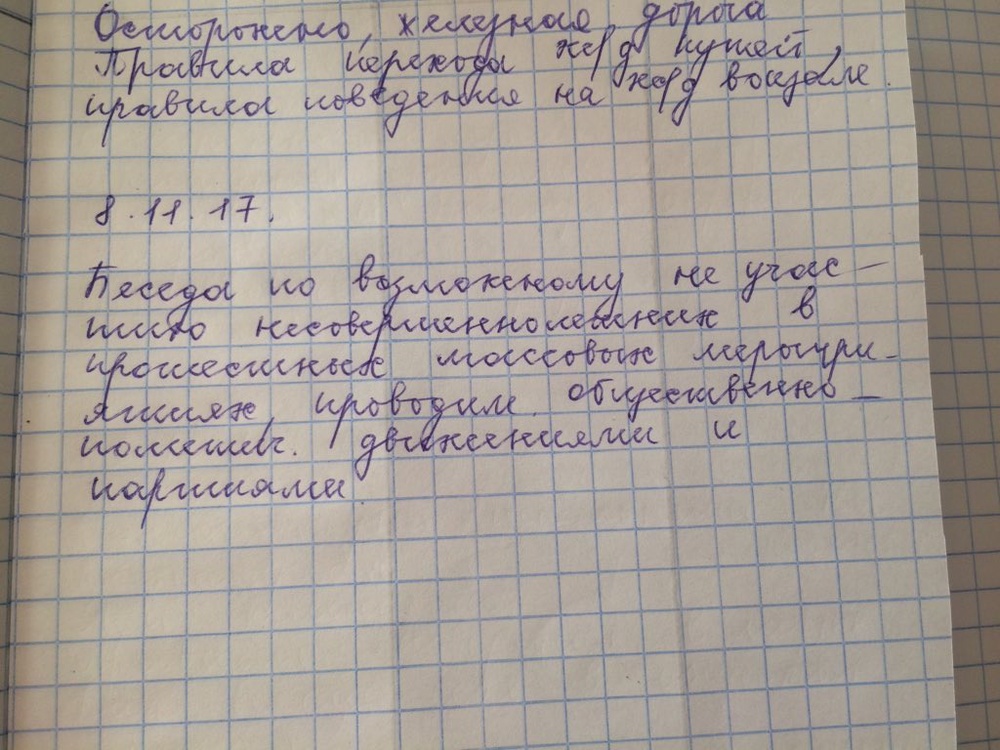 Осторожно, железная дорога
Правила перехода ж/д путей,
правила поведения на ж/д вокзале.
8.11.17.
Беседа по возможному не учас-
тию несовершеннолетних в
протестных массовых меропри-
ятиях, проводим. общественно-
политич. движениями и
партиями.